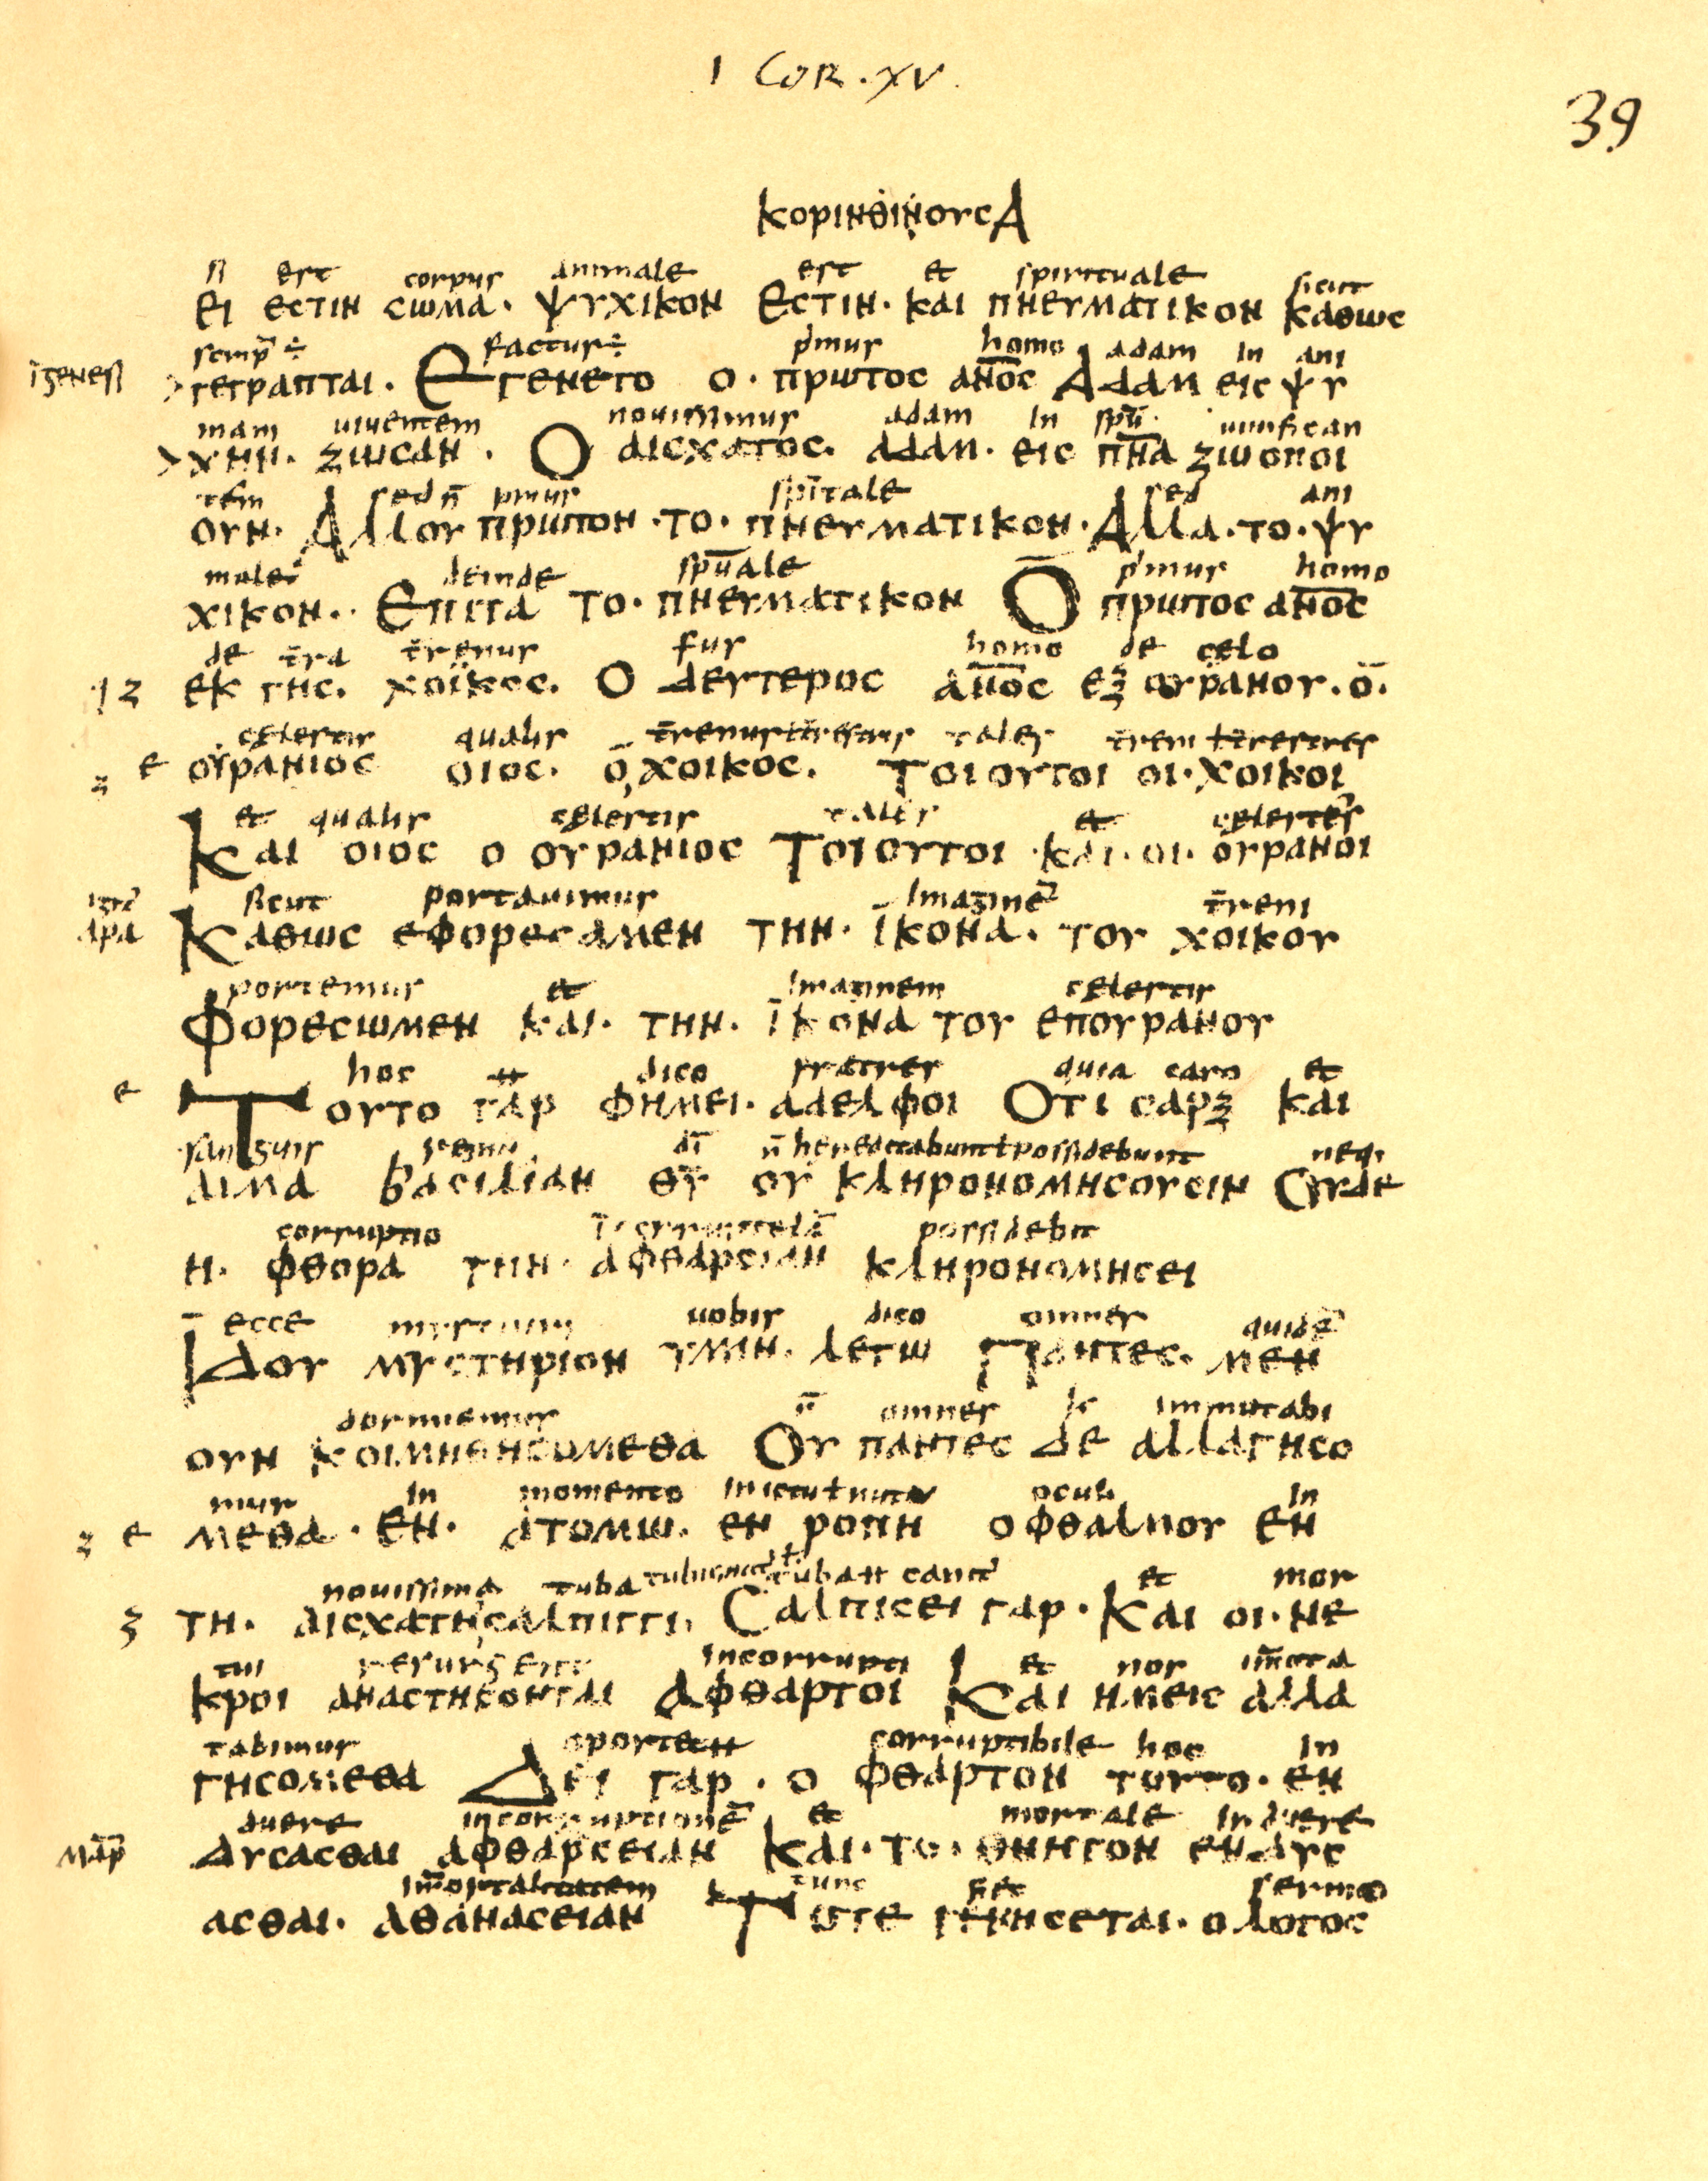 1 COR. XV.
39
ΚΟΡΙΝΘΙΝΟΥϹ Α
si est corpus animale est et spirituale sicut
ΕΙ ΕϹΤΙΝ ϹΩΜΑ· ΨΥΧΙΚΟΝ ΕϹΤΙΝ· ΚΑΙ ΠΝΕΥΜΑΤΙΚΟΝ ΚΑΘΩϹ
scrip̄ ÷ factus ÷ p̓mus homo adam in ani
ī genesi > ΓΕΓΡΑΠΤΑΙ· ΕΓΕΝΕΤΟ Ο· ΠΡΩΤΟϹ ΑΝ̅Ο̅Ϲ ΑΔΑΜ ΕΙϹ ΨΥ
mam uiuentem nouissimus adam in sp̄u· uiuifican
> ΧΗΝ· ΖΩϹΑΝ· Ο ΑΙϹΧΑΤΟϹ· ΑΔΑΜ· ΕΙϹ Π̅Ν̅Α ΖΩΟΠΟΙ
tem sed n̄ pmus spitale sed ani
ΟΥΝ· ΑΛΛΟΥ ΠΡΩΤΟΝ·ΤΟ·ΠΝΕΥΜΑΤΙΚΟΝ·ΑΛΛΑ·ΤΟ·ΨΥ
male deinde spūale p̓mus homo
ΧΙΚΟΝ·· ΕΠΙΤΑ ΤΟ·ΠΝΕΥΜΑΤΙΚΟΝ Ο ΠΡΩΤΟϹ ΑΝ̅Ο̅Ϲ
de t̄ra t̄renus fus homo de celo
ΕΚ ΓΗϹ· ΧΟΪΚΟϹ· Ο ΔΕΥΤΕΡΟϹ ΑΝ̅Ο̅Ϲ ΕΞ ΟΥΡΑΝΟΥ·Ο̄·
celestis qualis t̄renus ł t̄restris tales t̄reni ł t̄restres
Ζ Ε ΟΥΡΑΝΙΟϹ ΟΙΟϹ· Ο, ΧΟΙΚΟϹ· ΤΟΙΟΥΤΟΙ ΟΙ·ΧΟΙΚΟΙ
et qualis celestis tales et celestes
ΚΑΙ ΟΙΟϹ Ο ΟΥΡΑΝΙΟϹ ΤΟΙΟΥΤΟΙ ·ΚΑΙ·ΟΙ·ΟΥΡΑΝΟΙ
igr̄ sicut portauimus imaginē t̄reni
ΑΡΑ ΚΑΘΩϹ ΕΦΟΡΕϹΑΜΕΝ ΤΗΝ· ΙΚΟΝΑ· ΤΟΥ ΧΟΙΚΟΥ
portemus et imaginem celestis
ΦΟΡΕϹΩΜΕΝ ΚΑΙ· ΤΗΝ· ΙΚΟΝΑ ΤΟΥ ΕΠΟΥΡΑΝΟΥ
hoc dico fratres quia caro et
Ε ΤΟΥΤΟ ΓΑΡ ΦΗΜΕΙ· ΑΔΕΛΦΟΙ ΟΤΙ ϹΑΡΞ ΚΑΙ
sanguis regnu dī n̄ hereditabunt ł possidebunt neq;
ΑΙΜΑ ΒΑϹΙΛΙΑΝ Θ̅Υ̅ ΟΥ ΚΛΗΡΟΝΟΜΗϹΟΥϹΙΝ ΟΥΔΕ
corruptio possidebit
Η· ΦΘΟΡΑ ΤΗΝ· ΑΦΘΑΡϹΙΑΝ ΚΛΗΡΟΝΟΜΗϹΕΙ
ecce uobis dico omnes quidē
ΙΔΟΥ ΜΥϹΤΗΡΙΟΝ ΥΜΙΝ· ΛΕΓΩ ΠΑΝΤΕϹ· ΜΕΝ
dormiemus n̄ omnes immutabi
ΟΥΝ ΚΟΙΜΗΘΗϹΟΜΕΘΑ ΟΥ ΠΑΝΤΕϹ ΔΕ ΑΛΛΑΓΗϹΟ
mur in momento in ictu ł nutu oculi in
Ζ Ε ΜΕΘΑ· ΕΝ· ΑΤΟΜΩ· ΕΝ ΡΟΠΗ ΟΦΘΑΛΜΟΥ ΕΝ
nouissima tuba et mor
Ζ ΤΗ· ΑΙϹΧΑΤΗ,ϹΑΛΠΙΓΓΙ, ϹΑΛΠΙϹΕΙ ΓΑΡ· ΚΑΙ ΟΙ·ΝΕ
tui resurgent incorrupti et nos im̄uta
ΚΡΟΙ ΑΝΑϹΤΗϹΟΝΤΑΙ ΑΦΘΑΡΤΟΙ ΚΑΙ ΗΜΕΙϹ ΑΛΛΑ
tabimur corruptibile hoc in
ΓΗϹΟΜΕΘΑ ΔΕΙ ΓΑΡ· Ο ΦΘΑΡΤΟΝ ΤΟΥΤΟ· ΕΝ
duere incorruptionē et mortale induere
ΔΥϹΑϹΘΑΙ ΑΦΘΑΡϹΕΙΑΝ ΚΑΙ·ΤΟ·ΘΝΗΤΟΝ ΕΝΔΥϹ
im̄ortalitatem tunc fiet sermo
ΑϹΘΑΙ· ΑΘΑΝΑϹΕΙΑΝ ΤΟΤΕ ΓΕΝΗϹΕΤΑΙ· Ο ΛΟΓΟϹ